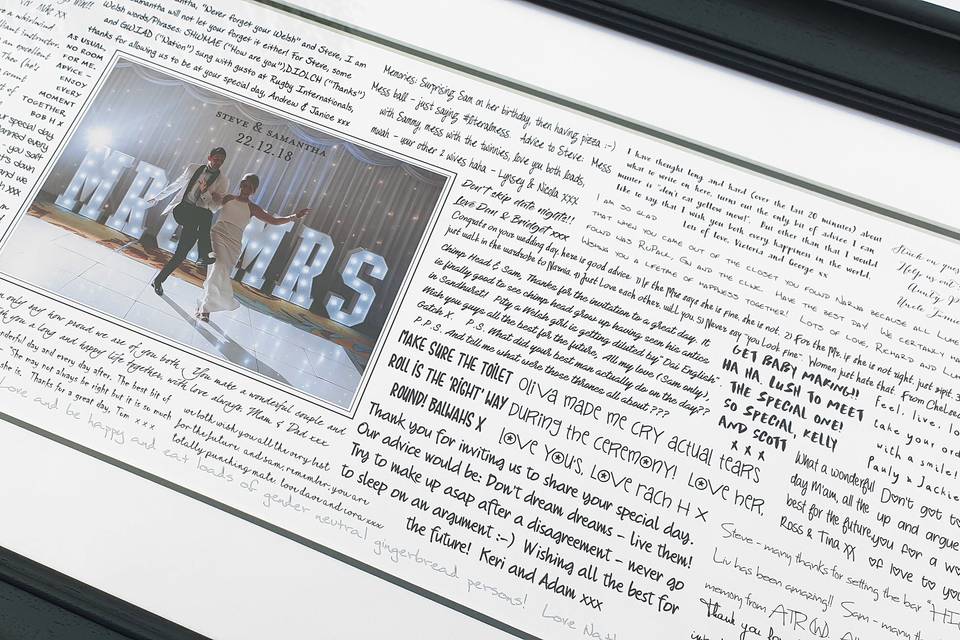 Samantha, "Never forget your Welsh" and Steve, I am
Samantha will not let your forget it either! For Steve, some
Welsh words/Phrases: SHWMAE ("How are you"), DIOLCH ("Thanks")
and GWLAD ("Nation") sung with gusto at Rugby Internationals,
thanks for allowing us to be at your special day. Andrew & Janice xxx
AS USUAL,
NO ROOM
FOR ME.
ADVICE -
ENJOY
EVERY
MOMENT
TOGETHER
BOB H X
STEVE & SAMANTHA
22.12.18
MR & MRS
only how proud we are of you both. You make a wonderful couple and
a long and happy life together, with love always, Mum & Dad xxx
wonderful day and every day after. The best bit of
She may not always be right but it is so much
she is. Thanks for a great day, Tom xxx
we both wish you all the very best
for the future, and sam, remember, you are
totally punching mate. love dave and cora xxx
Love and be happy and eat loads of gender neutral gingerbread persons! Love Nat
Memories: Surprising Sam on her birthday, then having pizza :-)
Mess ball - just saying #literalmess. Advice to Steve: Mess
with Sammy, mess with the twinnies, love you both loads,
mwah - your other 2 wives haha - Lynsey & Nicola xxx
Don't skip date nights!!
Love Dan & Bridget xxx
Congrats on your wedding day, here is good advice. 1) If the Mrs says she is fine, she is not. 2) For the Mr, if she is not right, just
just walk in the wardrobe to Narnia. 4) Just love each other, will you. 5) Never say "you look fine". Women just hate that. From Chelsea
Chimp Head & Sam, Thanks for the invitation to a great day. It
is finally good to see chimp head grow up having seen his antics
in Sandhurst! Pity a Welsh girl is getting diluted by "Dai English".
Wish you guys all the best for the future, All my love (Sam only),
Gatch X. P.S. What did your best man actually do on the day??
P.P.S. And tell me what were those thrones all about???
MAKE SURE THE TOILET
ROLL IS THE 'RIGHT' WAY
ROUND! BALWAHS X
Oliva made me cry actual tears
during the ceremony! Love her,
love you's. Love rach H X
Thank you for inviting us to share your special day.
Our advice would be: Don't dream dreams - live them!
Try to make up asap after a disagreement - never go
to sleep on an argument :-) Wishing all the best for
the future! Keri and Adam xxx
I have thought long and hard (over the last 20 minutes) about
what to write on here, turns out the only bit of advice I can
muster is "don't eat yellow snow". But other than that I would
like to say that I wish you both every happiness in the world.
Lots of love, Victoria and George xx
I AM SO GLAD
THAT WHEN YOU CAME OUT OF THE CLOSET YOU FOUND NARNIA BECAUSE ALL LUKE
FOUND WAS RUPAUL, GIN AND THE CLINIC. HAVE THE BEST DAY. WE CERTAINLY
WISHING YOU A LIFETIME OF HAPPINESS TOGETHER! LOTS OF LOVE, RICHARD AND
GET BABY MAKING!!
HA HA. LUSH TO MEET
THE SPECIAL ONE!
SO SPECIAL, KELLY
AND SCOTT
X X X
Feel. live.
take your
with a smile!
Pauly & Jackie
What a wonderful
day M'am, all the
best for the future,
Ross & Tina XX
Don't got to
up and argue
you for a
of love to you
Steve - many thanks for setting the bar
Liv has been amazing!! Sam - many
memory from ATR(W)
Thank you